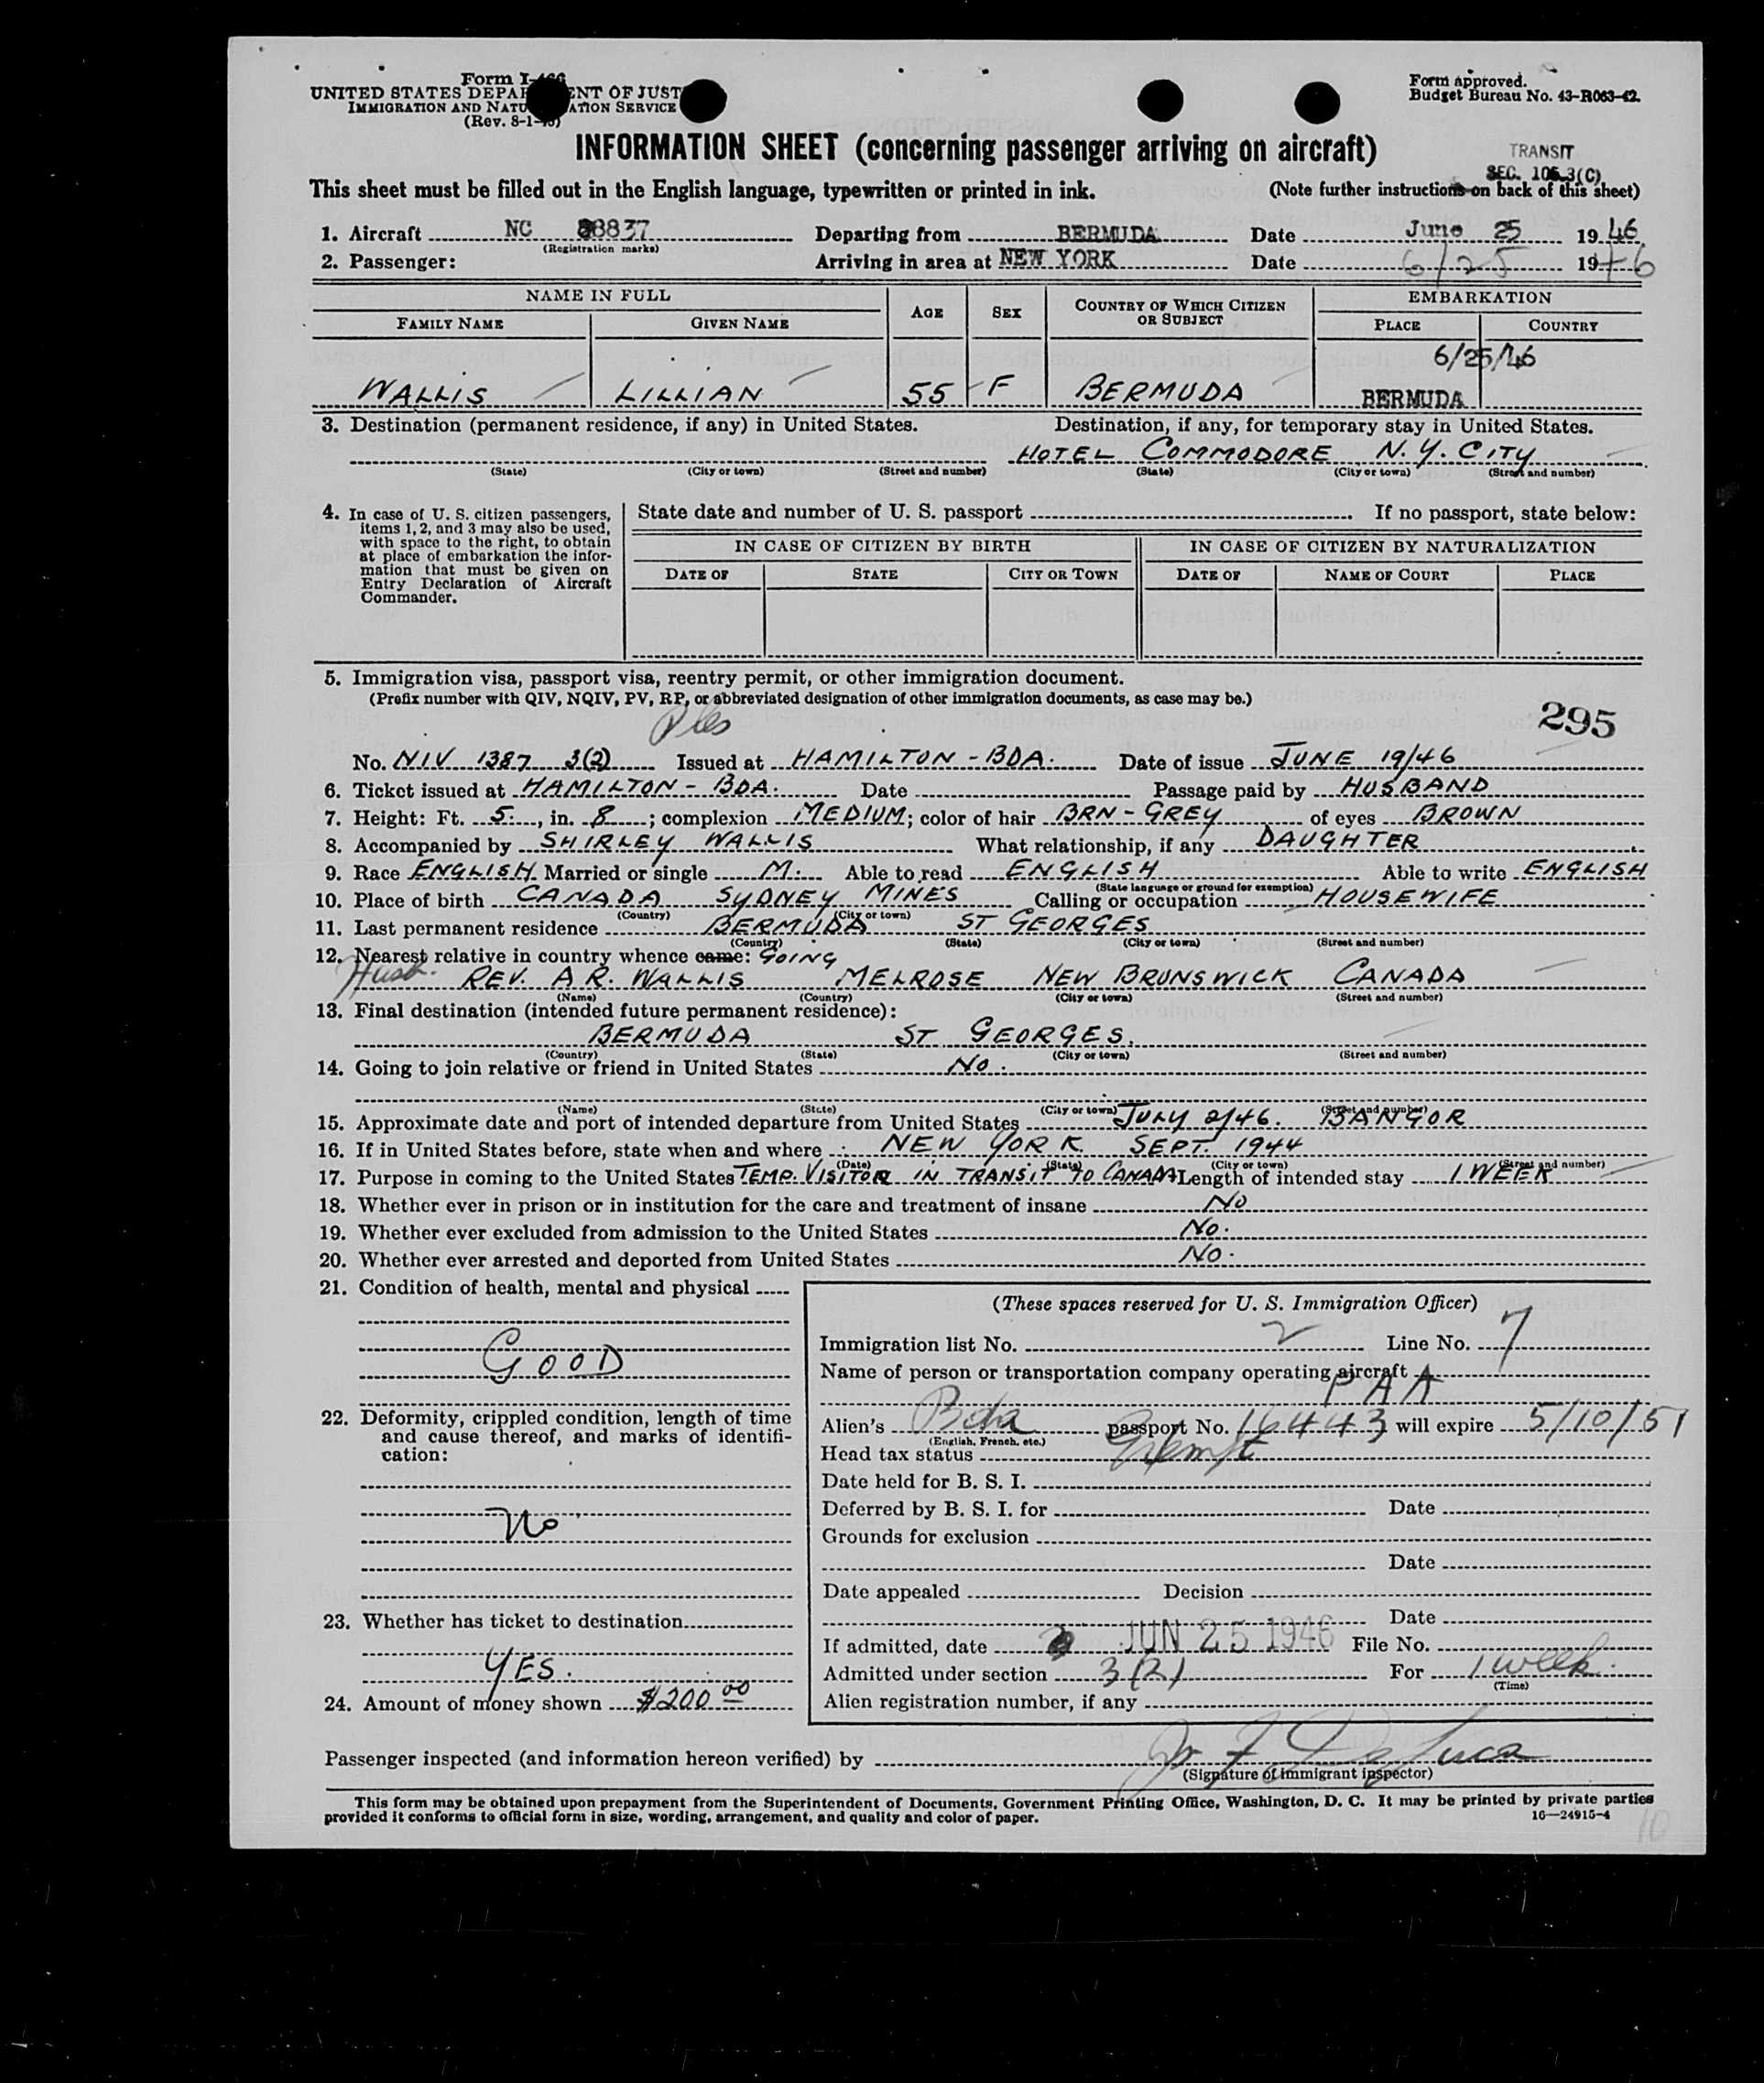 Form I-466
UNITED STATES DEPARTMENT OF JUSTICE
IMMIGRATION AND NATURALIZATION SERVICE
(Rev. 8-1-45)
Form approved.
Budget Bureau No. 43-R063-42.
INFORMATION SHEET (concerning passenger arriving on aircraft)
TRANSIT
SEC. 105.3(C)
This sheet must be filled out in the English language, typewritten or printed in ink. (Note further instructions on back of this sheet)
1. Aircraft NC 88837 Departing from BERMUDA Date June 25 1946
(Registration marks)
2. Passenger: Arriving in area at NEW YORK Date 6/25 1946
NAME IN FULL AGE SEX COUNTRY OF WHICH CITIZEN OR SUBJECT EMBARKATION
FAMILY NAME GIVEN NAME PLACE COUNTRY
6/25/46
WALLIS LILLIAN 55 F BERMUDA BERMUDA
3. Destination (permanent residence, if any) in United States. Destination, if any, for temporary stay in United States.
HOTEL COMMODORE N.Y. CITY
(State) (City or town) (Street and number) (State) (City or town) (Street and number)
4. In case of U. S. citizen passengers, items 1, 2, and 3 may also be used, with space to the right, to obtain at place of embarkation the information that must be given on Entry Declaration of Aircraft Commander.
State date and number of U. S. passport If no passport, state below:
IN CASE OF CITIZEN BY BIRTH IN CASE OF CITIZEN BY NATURALIZATION
DATE OF STATE CITY OR TOWN DATE OF NAME OF COURT PLACE
5. Immigration visa, passport visa, reentry permit, or other immigration document.
(Prefix number with QIV, NQIV, PV, RP, or abbreviated designation of other immigration documents, as case may be.)
295
No. NIV 1387 3(2) Issued at HAMILTON - BDA. Date of issue JUNE 19/46
6. Ticket issued at HAMILTON - BDA. Date Passage paid by HUSBAND
7. Height: Ft. 5, in. 8; complexion MEDIUM; color of hair BRN - GREY of eyes BROWN
8. Accompanied by SHIRLEY WALLIS What relationship, if any DAUGHTER
9. Race ENGLISH Married or single M. Able to read ENGLISH Able to write ENGLISH
(State language or ground for exemption)
10. Place of birth CANADA SYDNEY MINES Calling or occupation HOUSEWIFE
(Country) (City or town)
11. Last permanent residence BERMUDA ST GEORGES
(Country) (State) (City or town) (Street and number)
12. Nearest relative in country whence came: GOING
Husb. REV. A R. WALLIS MELROSE NEW BRUNSWICK CANADA
(Name) (Country) (City or town) (Street and number)
13. Final destination (intended future permanent residence):
BERMUDA ST GEORGES.
(Country) (State) (City or town) (Street and number)
14. Going to join relative or friend in United States No.
(Name) (State) (City or town) (Street and number)
15. Approximate date and port of intended departure from United States JULY 2/46. BANGOR
16. If in United States before, state when and where NEW YORK SEPT. 1944
(Date) (State) (City or town) (Street and number)
17. Purpose in coming to the United States TEMP. VISITOR IN TRANSIT TO CANADA Length of intended stay 1 WEEK
18. Whether ever in prison or in institution for the care and treatment of insane No
19. Whether ever excluded from admission to the United States No.
20. Whether ever arrested and deported from United States No.
21. Condition of health, mental and physical
GOOD
22. Deformity, crippled condition, length of time and cause thereof, and marks of identification:
No
23. Whether has ticket to destination
YES.
24. Amount of money shown $200.00
(These spaces reserved for U. S. Immigration Officer)
Immigration list No. 2 Line No. 7
Name of person or transportation company operating aircraft
PAA
Alien's Bda passport No. 16443 will expire 5/10/51
(English, French, etc.)
Head tax status Exempt
Date held for B. S. I.
Deferred by B. S. I. for Date
Grounds for exclusion
Date
Date appealed Decision
Date
If admitted, date JUN 25 1946 File No.
Admitted under section 3(2) For 1 week.
(Time)
Alien registration number, if any
Passenger inspected (and information hereon verified) by
(Signature of immigrant inspector)
This form may be obtained upon prepayment from the Superintendent of Documents, Government Printing Office, Washington, D. C. It may be printed by private parties
provided it conforms to official form in size, wording, arrangement, and quality and color of paper. 16—24915-4
10